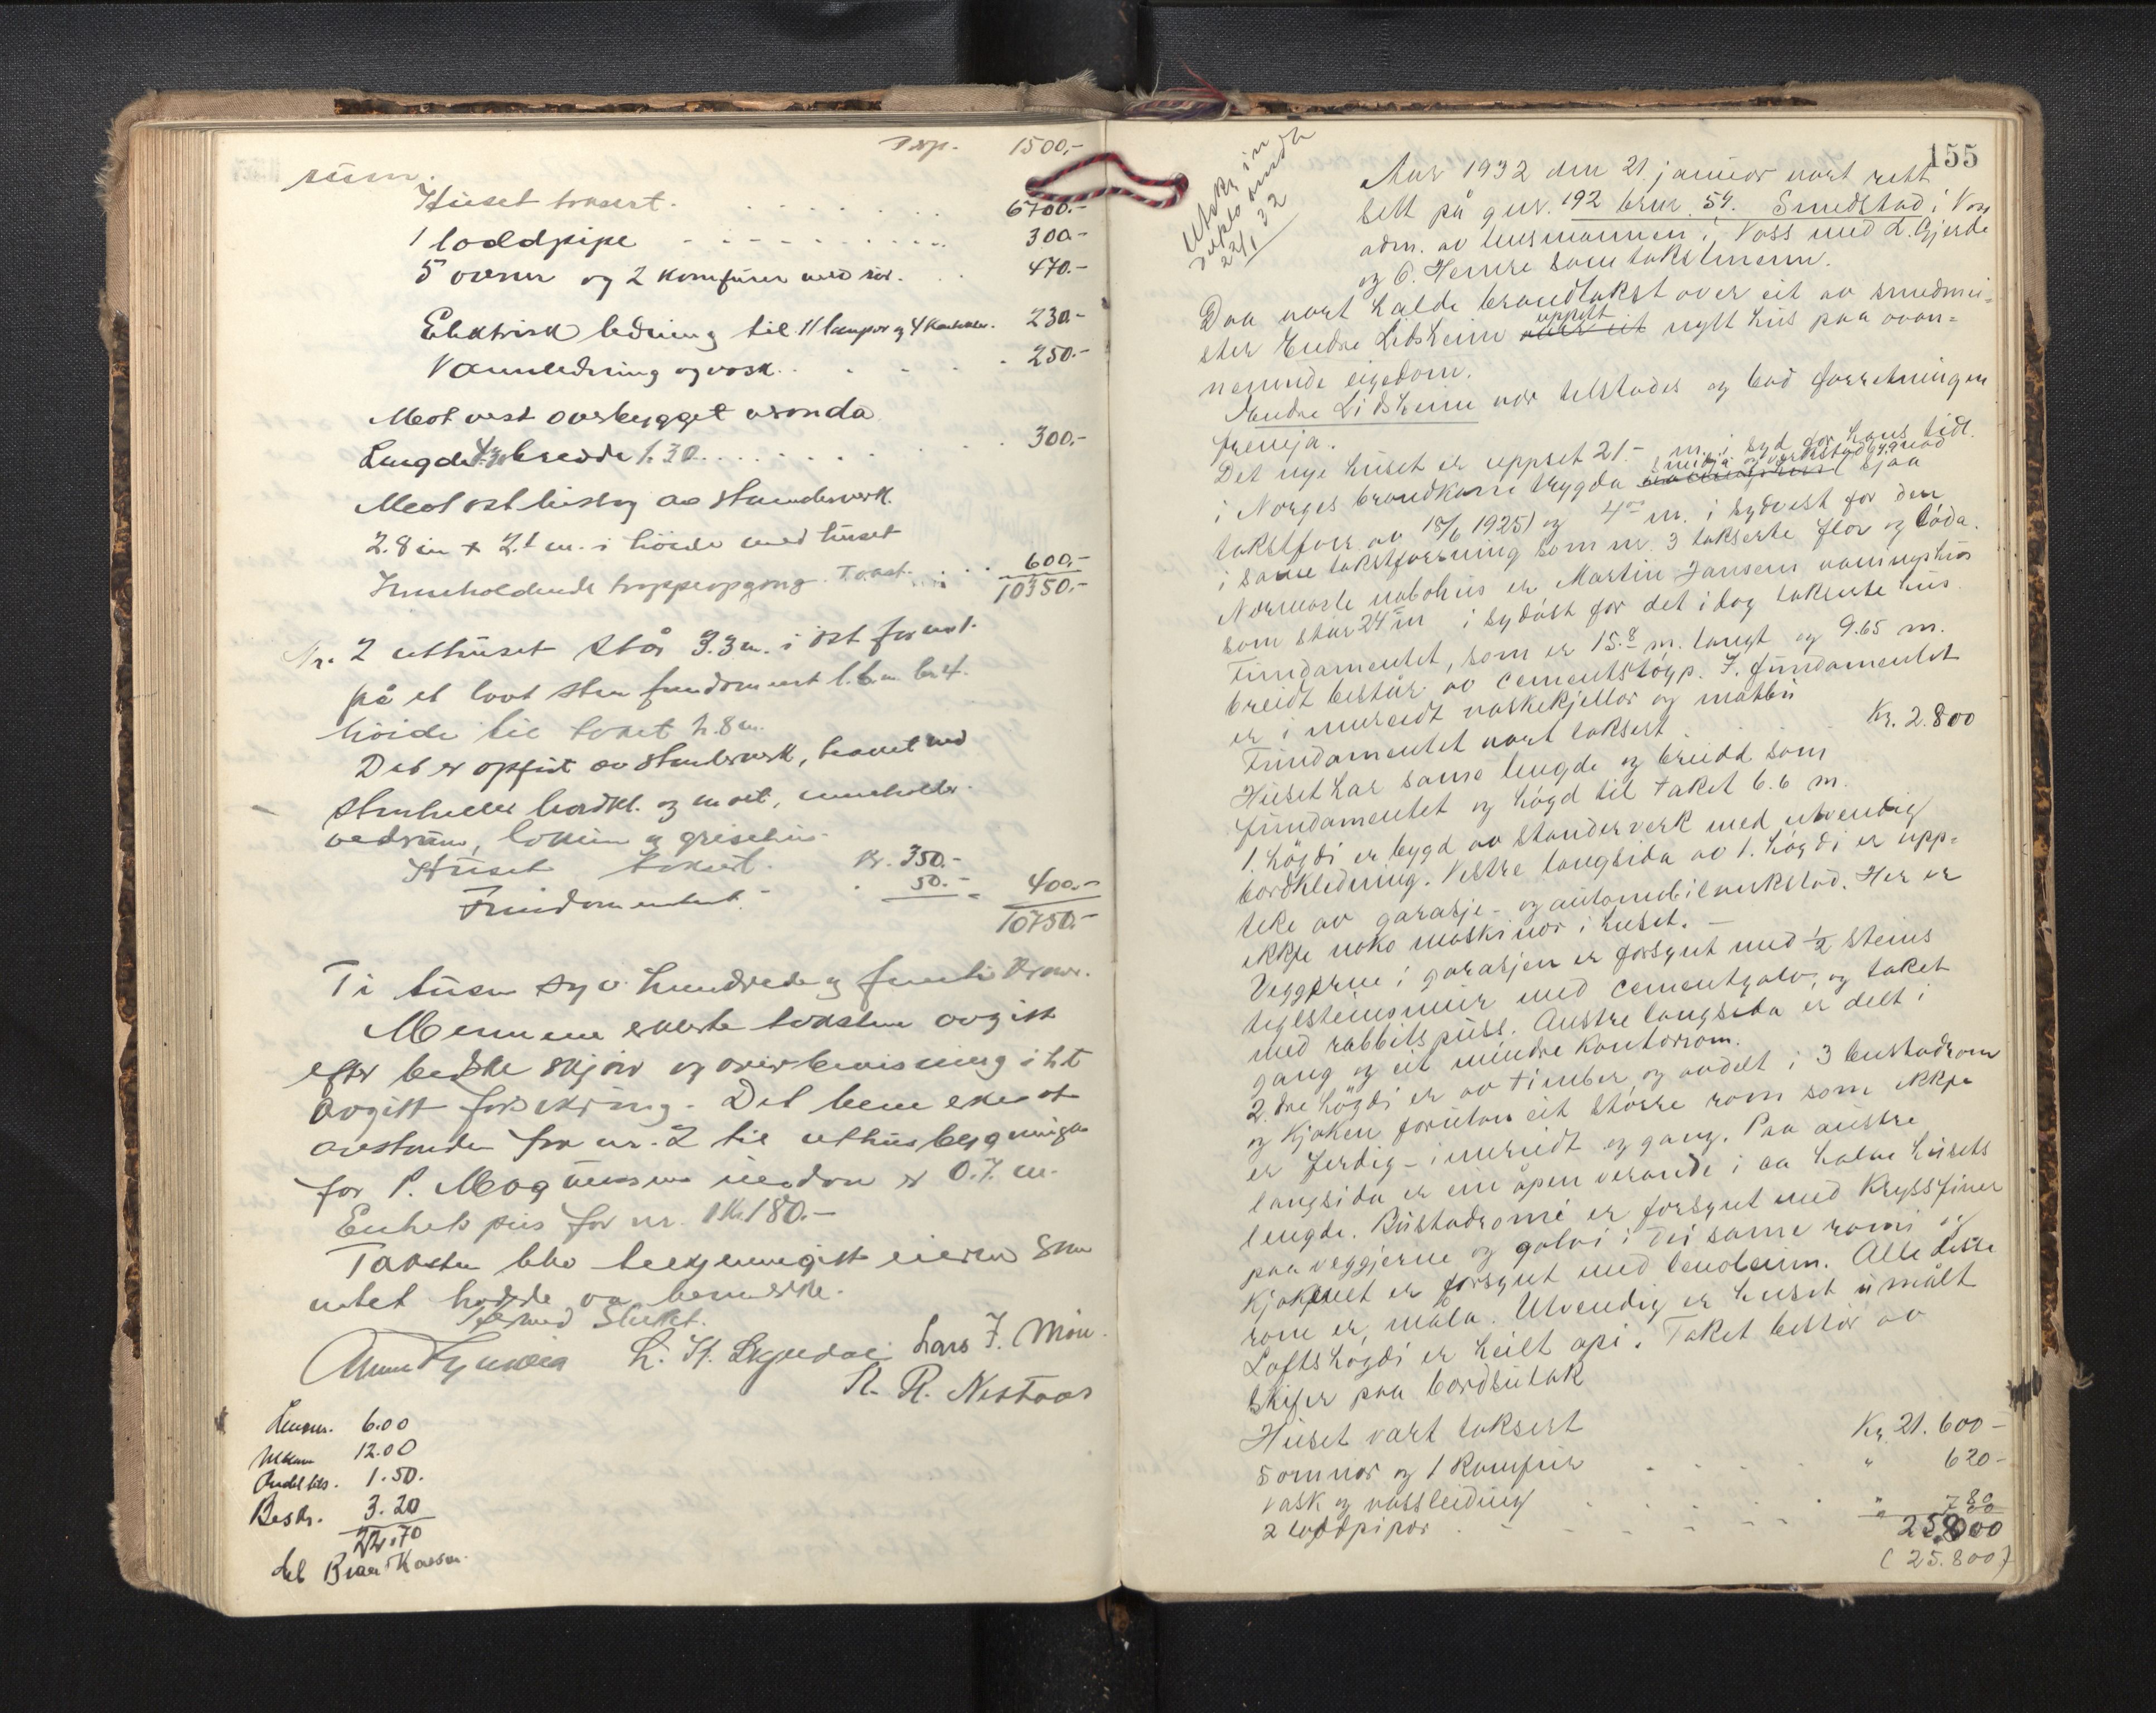 Trsp. 1500,-
rum.
Huset taksert. 6700.-
1 loddpipe 300.-
5 ovner og 2 komfurer med rör. 470.-
Elektrisk ledning til 11 lamper og 4 kontakter. 230.-
Vannledning og vask. 250.-
Mot vest overbygget veranda
Lengde 4.30 bredde 1.30. 300.-
Mot ost tilbyg av stenderverk.
2.8 m x 2.1 m. i höide med huset
Inneholdende trappeopgang. Takst. 600.-
10350.-
Nr. 2 uthuset står 3.3 m. i öst for no 1.
på et lavt sten fundament l. 6 m. br. 4.
höide til taket h. 8 m.
Det er opfört av stenderverk, tekket med
stenheller bordkl. og malt, inneholder
vedrum, lokum og grisehus.
Huset taksert. Kr. 350.-
Fundamentet 50.- = 400.-
10750.-
Ti tusen syv hundrede og femti kroner.
Mennene erklærte taksten avgitt
efter beste skjön og overbevisning i h.t.
avgitt forsikring. Det bemerkes at
avstanden fra nr. 2 til uthusbygningen
for P. Magnussens eiendom er 0.7 m.
Enhetspris for nr. 1 Kr 180.-
Taksten blev tilkjennegitt eieren som
intet hadde å bemerke.
Hermed sluttet.
L. K. Lyndal Lars J. Mön
R. R. Nestaas
Lensm. 6.00
12.00
1.50.
Beskr. 3.20
22.70
155
Utskr. in
duplo sendt
22/1 32
Aar 1932 den 21 januar vart rett
sett på gnr. 192 brnr. 54. Smedstad i Voss
adm. av lensmannen i Voss med L. Gjerde
og O. Hemre som takstmenn.
Daa vart halde brandtakst over eit av smedmei-
ster Endre Lidsheim uppsett nytt hus paa ovan-
nemnde eigedom.
Endre Lidsheim var tilstades og bad forretningen
fremja.
Det nye huset er uppset 21.- m. i syd for hans tidl.
i Norges brandkasse trygda smidja og verkstadbygnad (sjaa
takstforr. av 18/6 1925) og 4.- m. i sydvest for den
i same takstforretning som nr. 3 takserte flor og löda.
Nærmaste nabohus er Martin Jansens vaaningshus
som står 24 m i sydöst for det idag takserte hus.
Fundamentet, som er 15.8 m. langt og 9.65 m.
breidt består av cementstöyp. I fundamentet
er innreidt vaskekjellar og matbu
Fundamentet vart taksert Kr. 2.800
Huset har same lengde og breidd som
fundamentet og högd til taket 6.6 m.
1. högdi er bygd av standerverk med utvendig
bordkledning. Vestre langsida av 1. högdi er upp-
teke av garasje- og automobilverkstad. Her er
ikkje noko maskinor i huset. -
Veggerne i garasjen er forsynt med 1/2 steins
teglsteinsmur med cementgolv, og taket
med rabbitspuss. Austre langsida er delt i
gang og eit mindre kontorrom.
2 dre högdi er av timber og avdelt i 3 bustadrom
og kjöken foruten eit större rom som ikkje
er ferdig-innreidt og gang. Paa austre
langsida er ein åpen verande i aa halve husets
lengde. Bustadromi er forsynt med kryssfiner
paa veggjerne og golvi i dei same romi og
kjökkenet er forsynt med linoleum. Alle desse
rom er måla. Utvendig er huset umålt
Loftshögdi er heilt opi. Taket består av
skifer paa bordsutak
Huset vart taksert Kr. 21.600 -
5 omnar og 1 komfur " 620 -
Vask og vassleidning "
2 loddpipor "
25.800
(25.800)